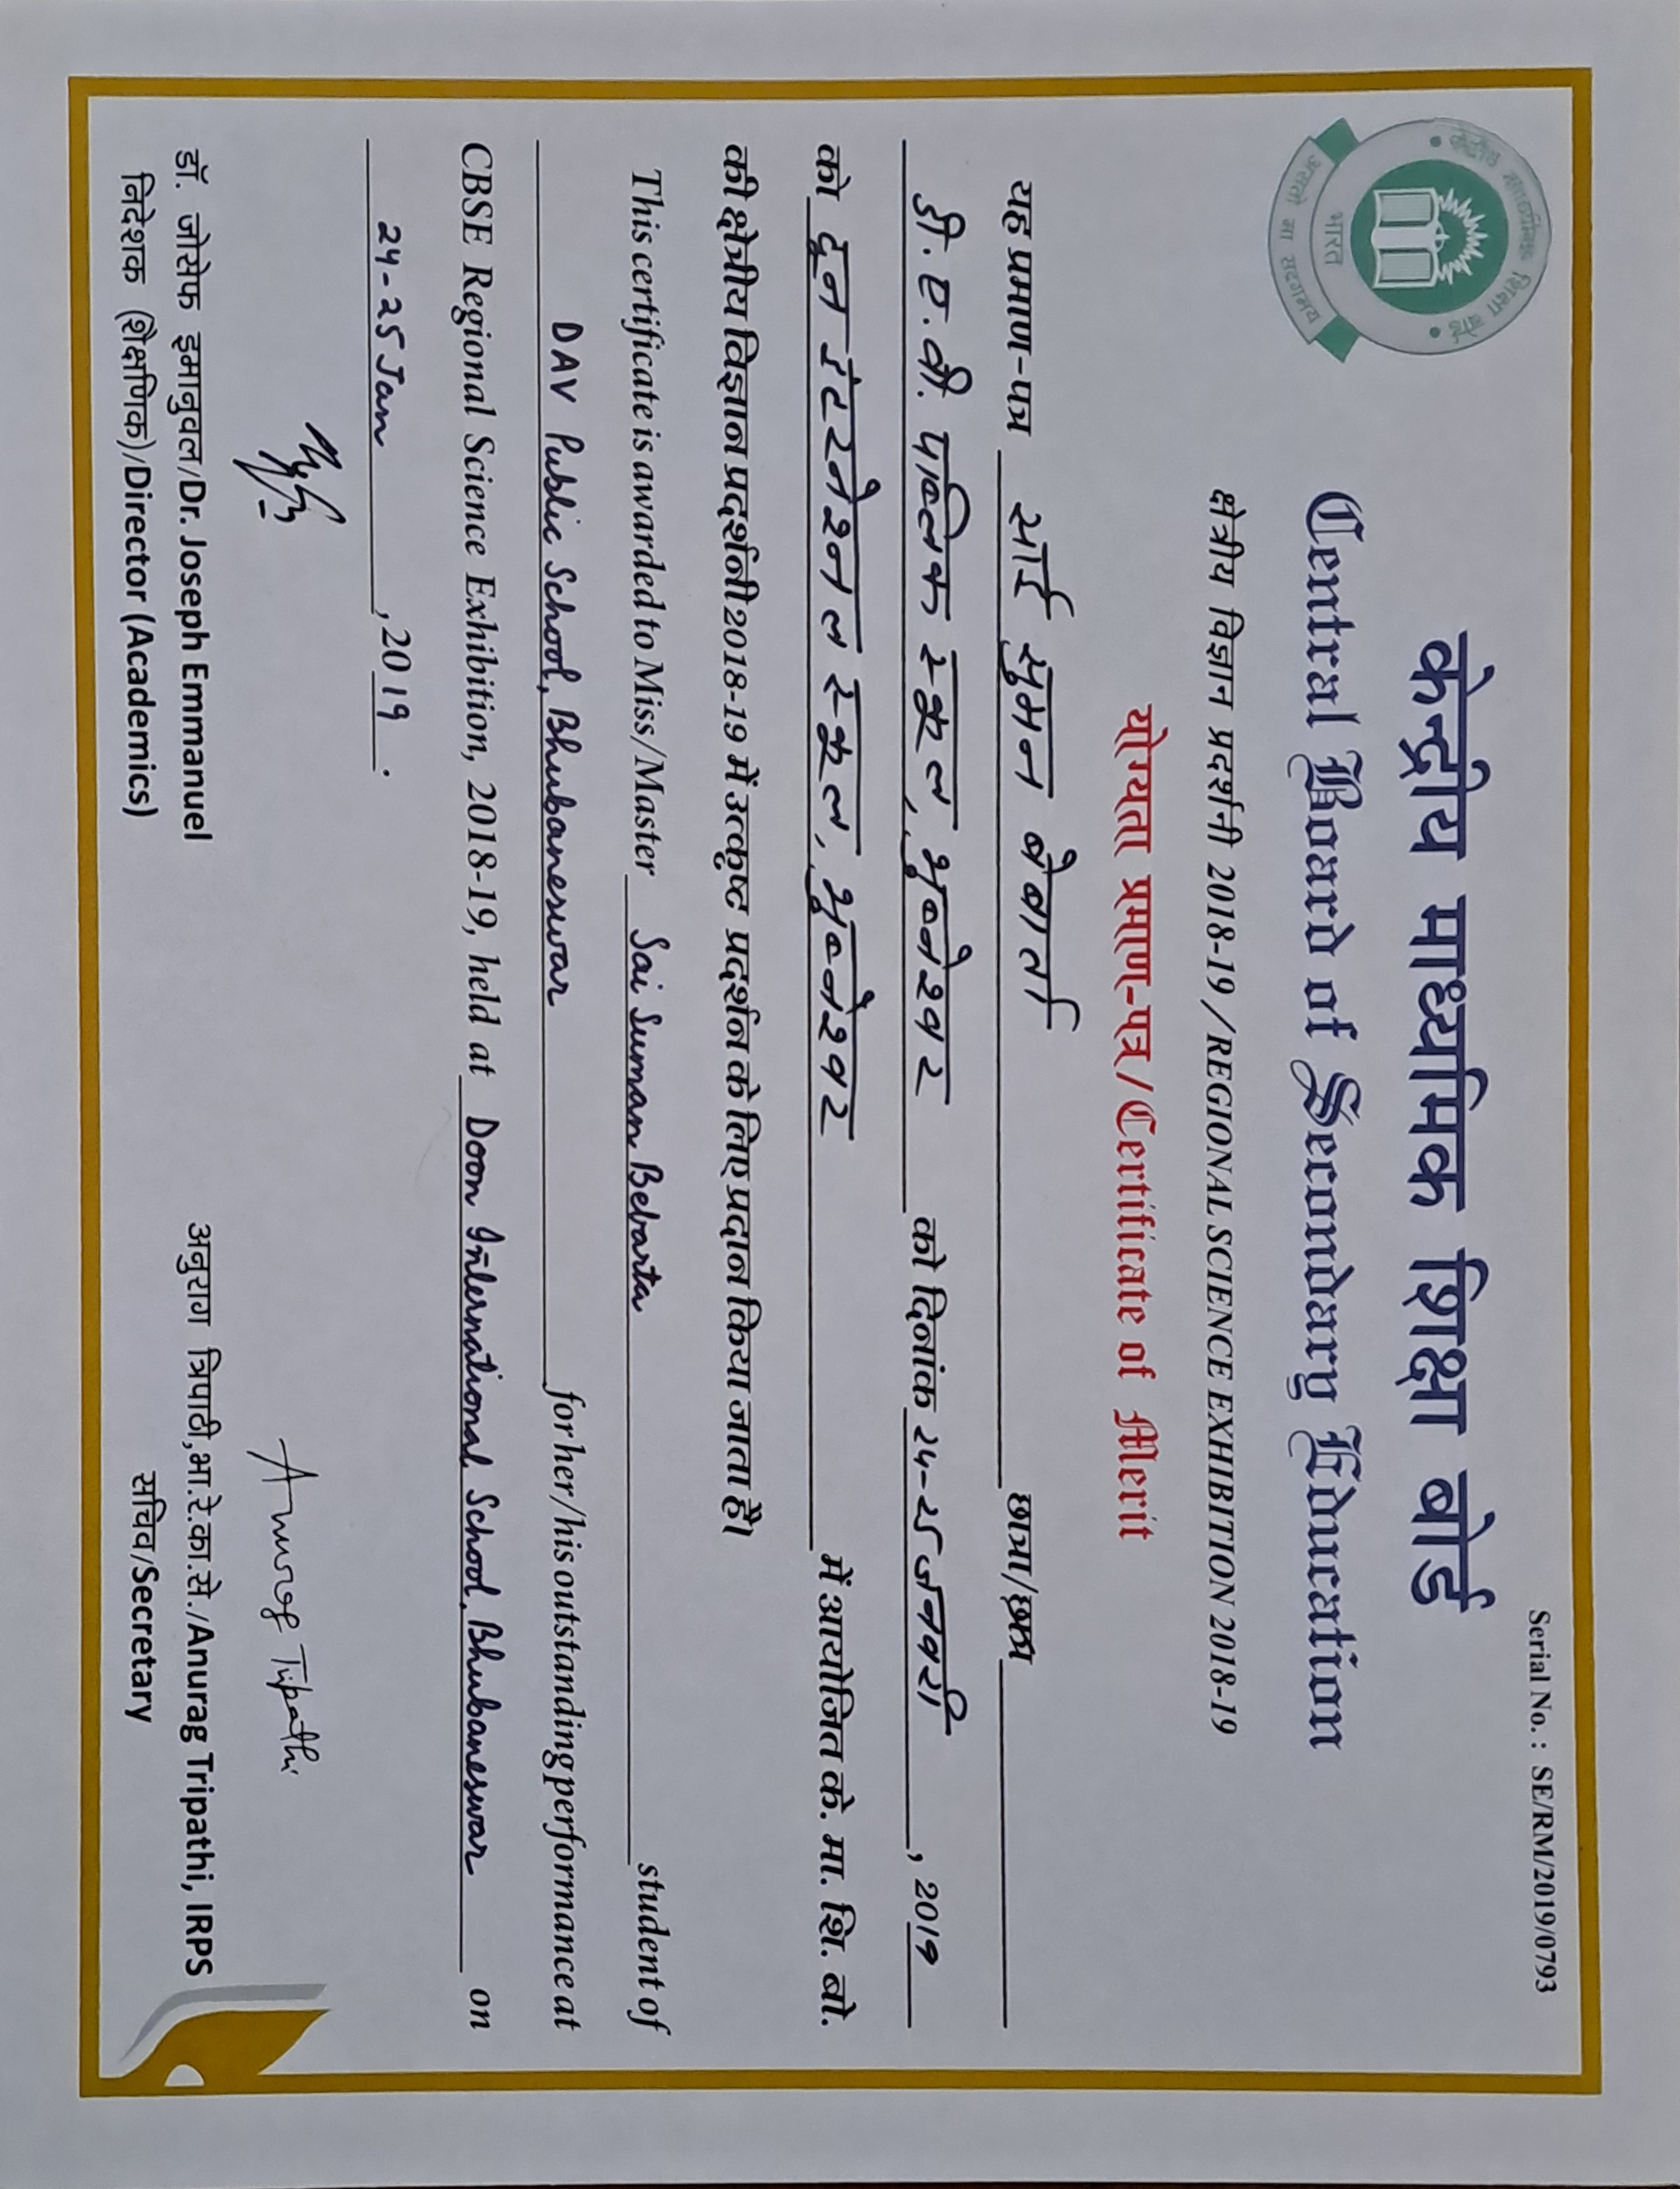 Serial No. : SE/RM/2019/0793
केन्द्रीय माध्यमिक शिक्षा बोर्ड
Central Board of Secondary Education
केन्द्रीय माध्यमिक शिक्षा बोर्ड
भारत
असतो मा सद्गमय
क्षेत्रीय विज्ञान प्रदर्शनी 2018-19/REGIONAL SCIENCE EXHIBITION 2018-19
योग्यता प्रमाण-पत्र/Certificate of Merit
यह प्रमाण-पत्र साई सुमन बेबार्ता छात्रा/छात्र
डी.ए.वी. पब्लिक स्कूल, भुवनेश्वर को दिनांक 24-25 जनवरी, 2019
को दून इंटरनेशनल स्कूल, भुवनेश्वर में आयोजित के. मा. शि. बो.
की क्षेत्रीय विज्ञान प्रदर्शनी 2018-19 में उत्कृष्ट प्रदर्शन के लिए प्रदान किया जाता है।
This certificate is awarded to Miss/Master Sai Suman Bebarta student of
DAV Public School, Bhubaneswar for her/his outstanding performance at
CBSE Regional Science Exhibition, 2018-19, held at Doon International School, Bhubaneswar on
24-25 Jan, 2019.
Anurag Tripathi
डॉ. जोसेफ इमानुवल/Dr. Joseph Emmanuel
निदेशक (शैक्षणिक)/Director (Academics)
अनुराग त्रिपाठी,भा.रे.का.से./Anurag Tripathi, IRPS
सचिव/Secretary